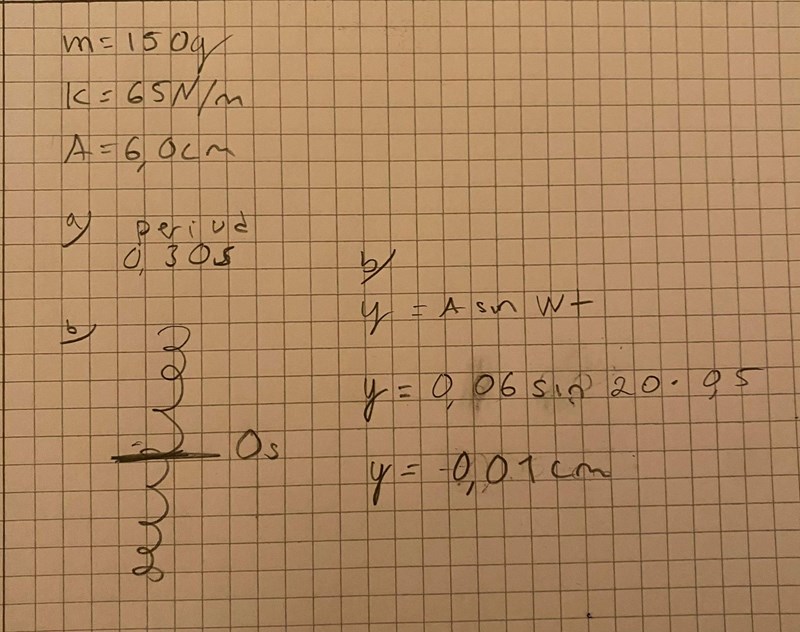 m=150g
K=65N/m
A=6,0cm
a) period
0,30s
b)
0s
b)
y = A sin Wt
y = 0,06 sin 20 · 0,5
y = -0,01 cm